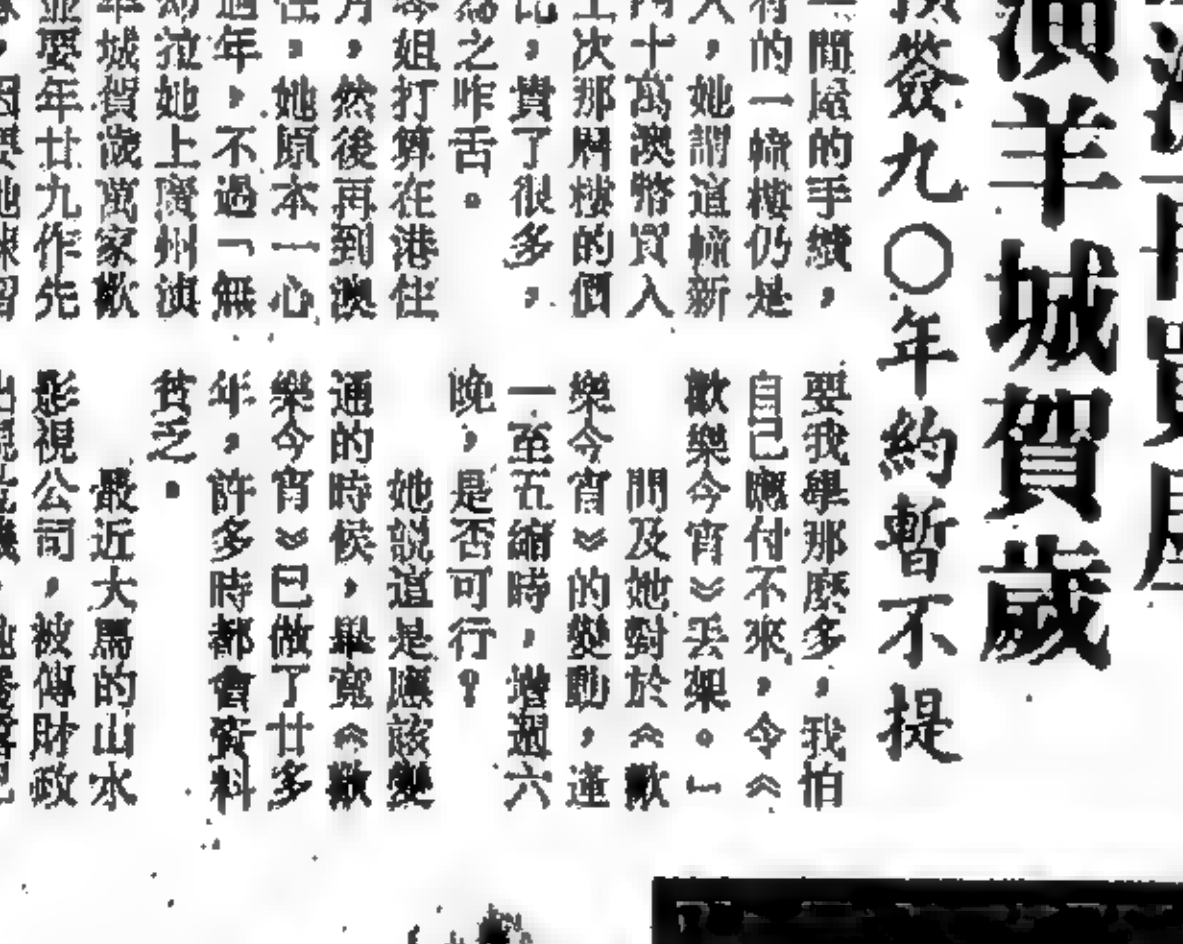 再買屋
演羊城賀歲
簽九〇年約暫不提
間屋的手續，
的一幢樓仍是
，她謂這幢新
十萬澳幣買入
次那層樓的價
，貴了很多，
之咋舌。
姐打算在港住
月，然後再到澳
，她原本一心
過年，不過「無
拉她上廣州演
年城賀歲萬家歡
要年廿九作先
要我學那麼多，我怕
自己應付不來，令《
歡樂今宵》丟架。」
問及她對於《歡
樂今宵》的變動，逢
一至五縮時，增週六
晚，是否可行？
她說這是應該變
通的時候，畢竟《歡
樂今宵》已做了廿多
年，許多時都會資料
貧乏。
最近大馬的山水
影視公司，被傳財政